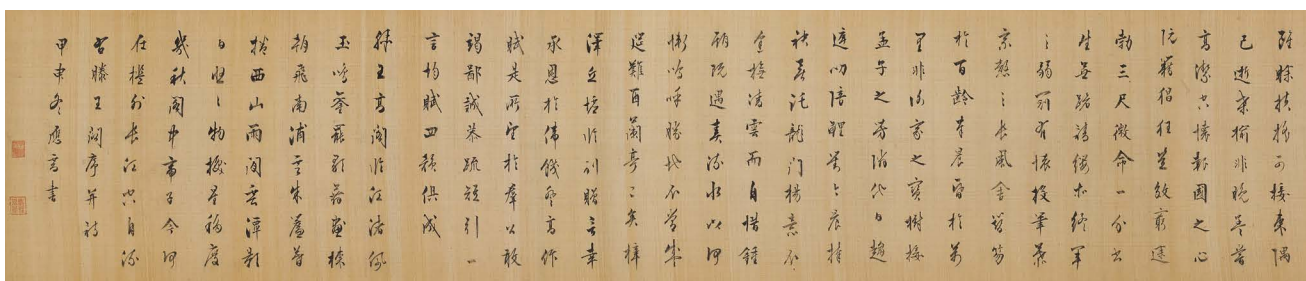 雖賒扶搖可接東隅
已逝桑榆非晚孟嘗
高潔空懷報國之心
阮籍猖狂豈效窮途
勃三尺微命一介書
生無路請纓等終軍
之弱冠有懷投筆慕
宗愨之長風舍簪笏
於百齡奉晨昏於萬
里非謝家之寶樹接
孟子之芳鄰他日趨
庭叨陪鯉對今晨捧
袂喜託龍門楊意不
逢撫凌雲而自惜鍾
期既遇奏流水以何
慚嗚呼勝地不常盛
筵難再蘭亭已矣梓
澤丘墟臨別贈言幸
承恩於偉餞登高作
賦是所望於羣公敢
竭鄙誠恭疏短引一
言均賦四韻俱成
滕王高閣臨江渚佩
玉鳴鑾罷歌舞畫棟
朝飛南浦雲朱簾暮
捲西山雨閒雲潭影
日悠悠物換星移度
幾秋閣中帝子今何
在檻外長江空自流
右滕王閣序并詩
甲申冬應高書